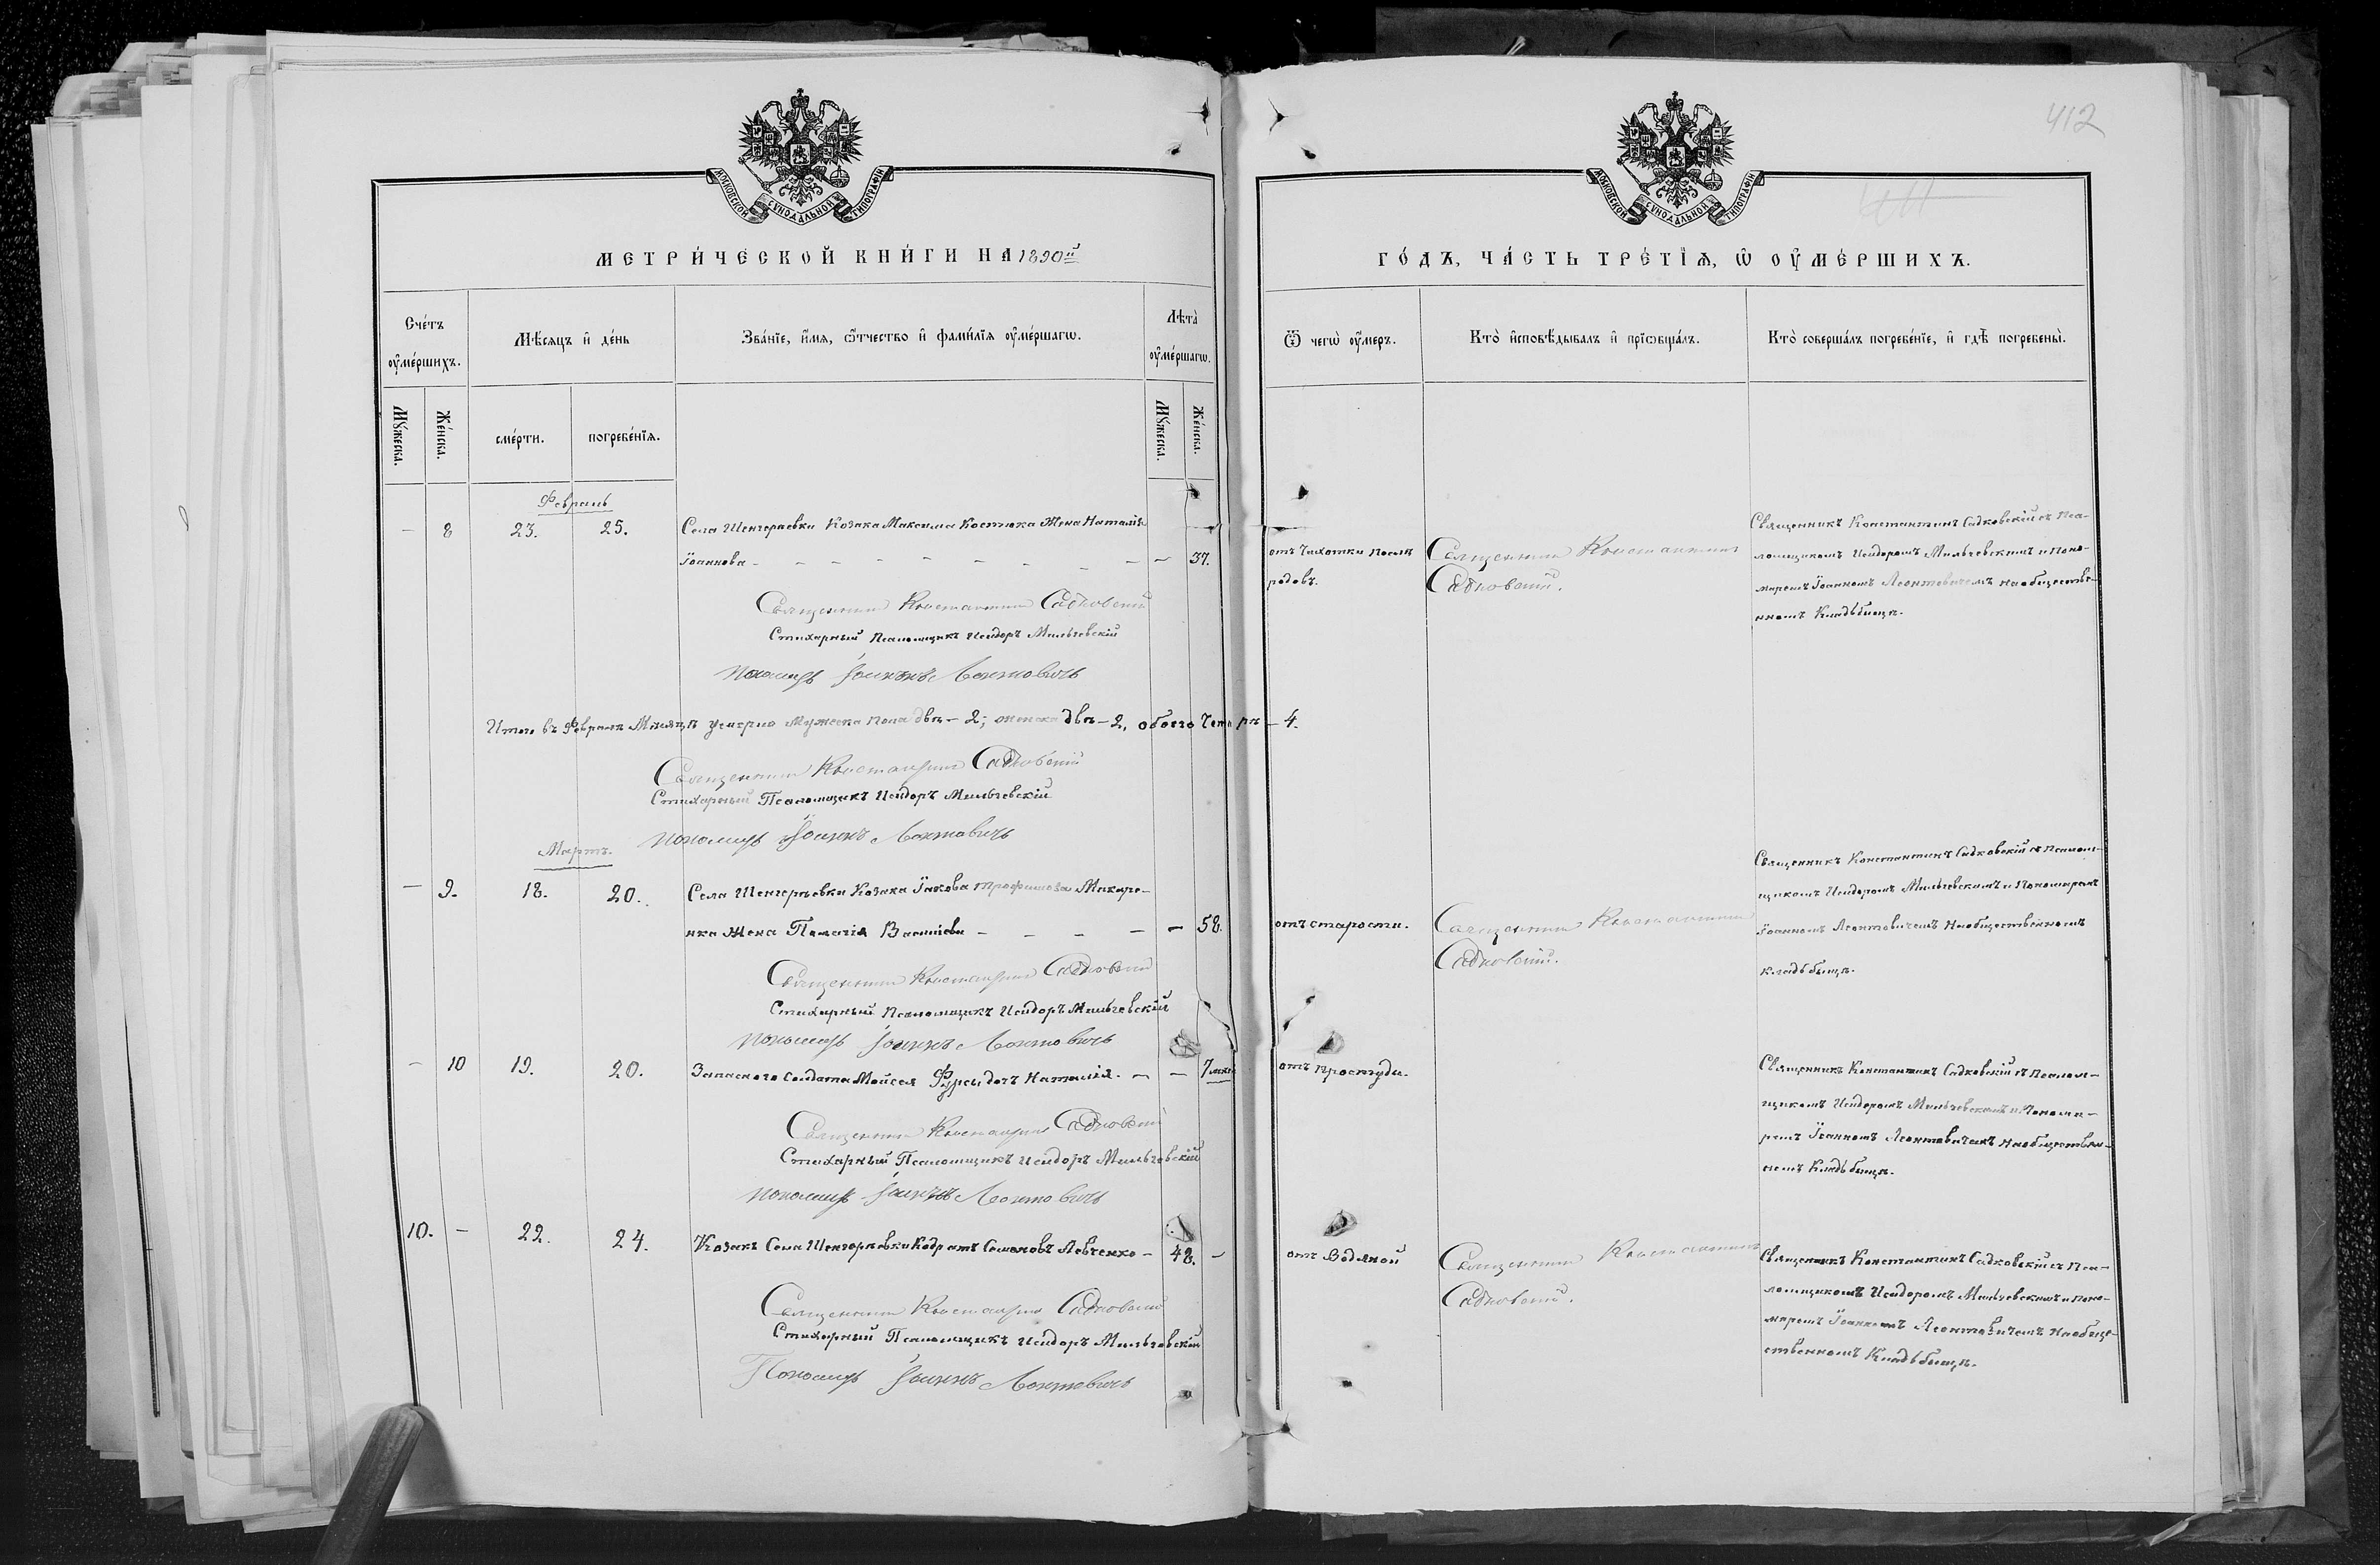 412
МОСКОВСКОЙ СѴНОДАЛЬНОЙ ТИПОГРАФІИ
МОСКОВСКОЙ СѴНОДАЛЬНОЙ ТИПОГРАФІИ
МЕТРИ́ЧЕСКОЙ КНИ́ГИ НА 1890й
ГО́ДЪ, ЧА́СТЬ ТРЕ́ТЇѦ, Ѡ ОУ҆МЕ́РШИХЪ.
Сче́тъ оу҆ме́ршихъ.
Мѣ́сяцъ и҆ де́нь
Зва́нїе, и҆́мѧ, ѻ҆́тчество и҆ фами́лїѧ оу҆ме́ршагѡ.
Лѣ́та̀ оу҆ме́ршагѡ.
Ѿ чегѡ̀ оу҆́меръ.
Кто̀ и҆сповѣ́дывалъ и҆ прїѡбща́лъ.
Кто̀ соверша́лъ погребе́нїе, и҆ гдѣ̀ погребены̀.
Мꙋ́жеска.
Же́нска.
сме́рти.
погребе́нїѧ.
Мꙋ́жеска.
Же́нска.
Февраль
— 8 23. 25. Села Шенгераевки Козака Максима Костюка Жена Наталія
Іоаннова — — 37.
Священникъ Константинъ Садковскій
Стихарный Псаломщикъ Исидоръ Мильчевскій
Пономарь Іоаннъ Леонтовичъ
отъ Чахотки послѣ
родовъ.
Священникъ Константинъ
Садковскій.
Священникъ Константинъ Садковскій съ Пса-
ломщикомъ Исидоромъ Мильчевскимъ и Поно-
маремъ Іоанномъ Леонтовичемъ на обществе-
нномъ Кладьбищѣ.
Итого въ Февралѣ Мѣсяцѣ умерло Мужеска пола двѣ — 2; женска двѣ — 2, обоего Четыре — 4.
Священникъ Константинъ Садковскій
Стихарный Псаломщикъ Исидоръ Мильчевскій
Пономарь Іоаннъ Леонтовичъ
Мартъ.
— 9. 18. 20. Села Шенгерѣевки Козака Іакова Трофимова Макаре-
нка Жена Пелагія Василіева — — 58.
Священникъ Константинъ Садковскій
Стихарный Псаломщикъ Исидоръ Мильчевскій
Пономарь Іоаннъ Леонтовичъ
отъ старости.
Священникъ Константинъ
Садковскій.
Священникъ Константинъ Садковскій съ Псалом-
щикомъ Исидоромъ Мильчевскимъ и Пономаремъ
Іоанномъ Леонтовичемъ На общественномъ
кладьбищѣ.
— 10 19. 20. Запаснаго Солдата Мойсея Фурсы дочь Наталія. — — 7
Священникъ Константинъ Садковскій
Стихарный Псаломщикъ Исидоръ Мильчевскій
Пономарь Іоаннъ Леонтовичъ
отъ простуды.
Священникъ Константинъ Садковскій съ Псалом-
щикомъ Исидоромъ Мильчевскимъ и Понома-
ремъ Іоанномъ Леонтовичемъ на обществен-
номъ Кладьбищѣ.
10. — 22. 24. Козакъ Села Шенгерѣевки Кодратъ Семеновъ Левченко — 48. —
Священникъ Константинъ Садковскій
Стихарный Псаломщикъ Исидоръ Мильчевскій
Пономарь Іоаннъ Леонтовичъ
отъ Водяной
Священникъ Константинъ
Садковскій.
Священникъ Константинъ Садковскій съ Пса-
ломщикомъ Исидоромъ Мильчевскимъ и Поно-
маремъ Іоанномъ Леонтовичемъ На обще-
ственномъ Кладьбищѣ.